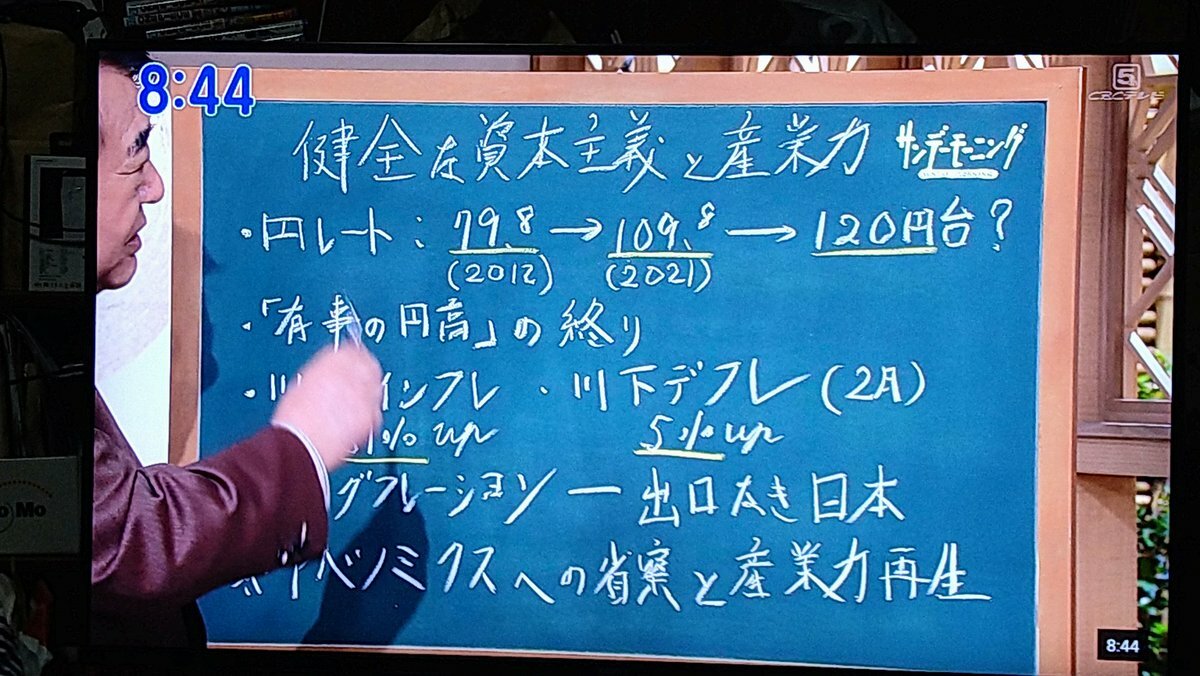 8:44
5
CBCテレビ
健全な資本主義と産業力
サンデーモーニング
・円レート：79.8→109.8→120円台？
(2012) (2021)
・「有事の円高」の終り
・川 インフレ・川下デフレ(2月)
% up 5% up
グフレーション ― 出口なき日本
ベノミクスへの省察と産業力再生
8:44
Mo